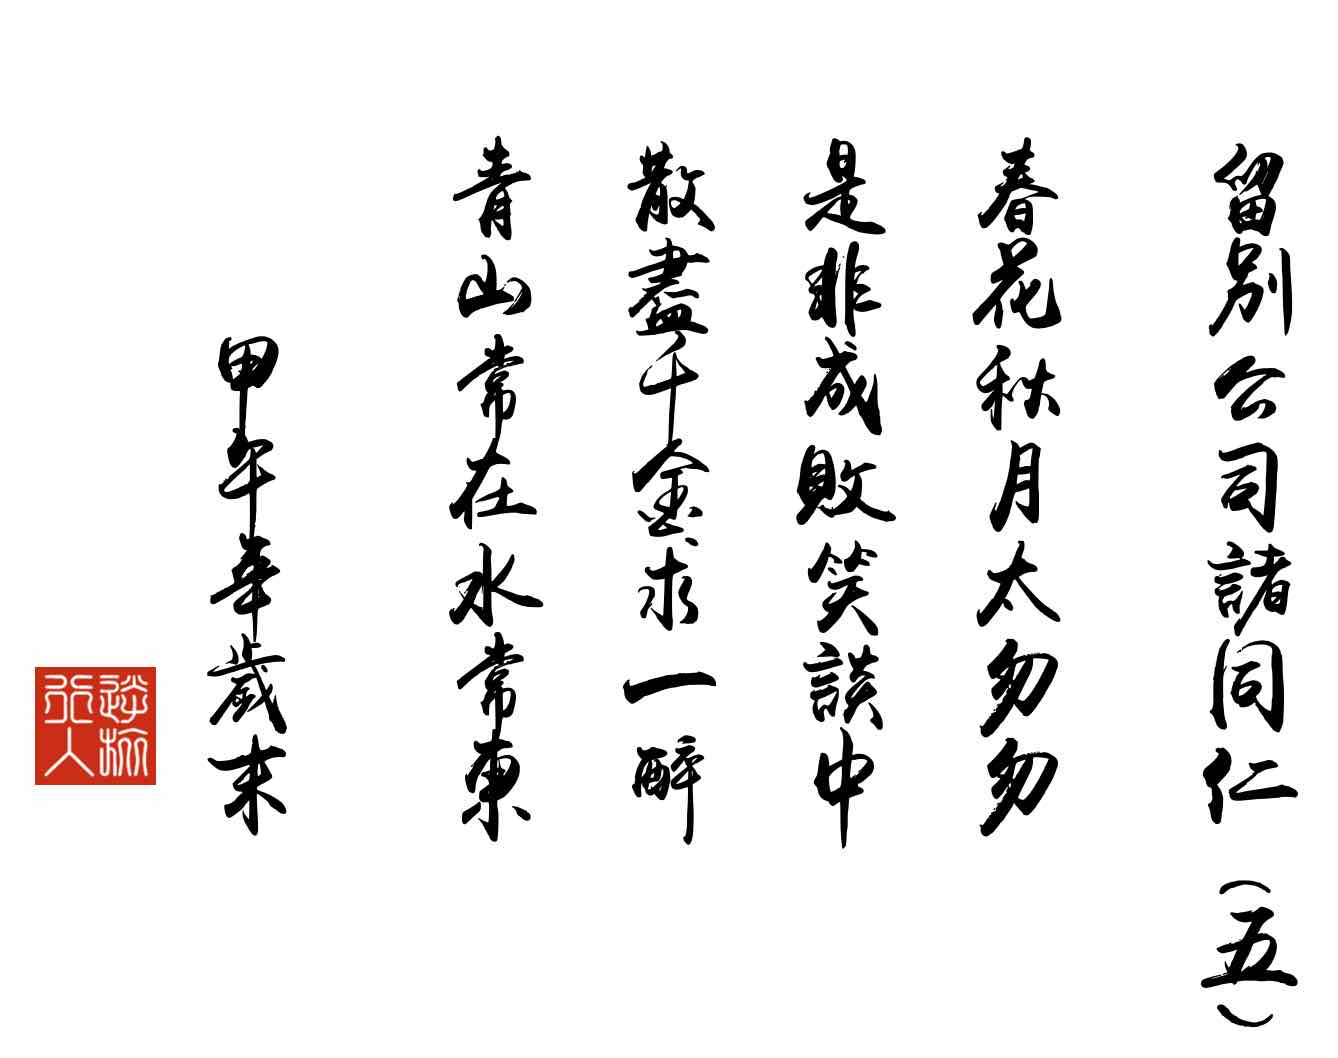 留別公司諸同仁（五）
春花秋月太匆匆
是非成敗笑談中
散盡千金求一醉
青山常在水常東
甲午年歲末
行人